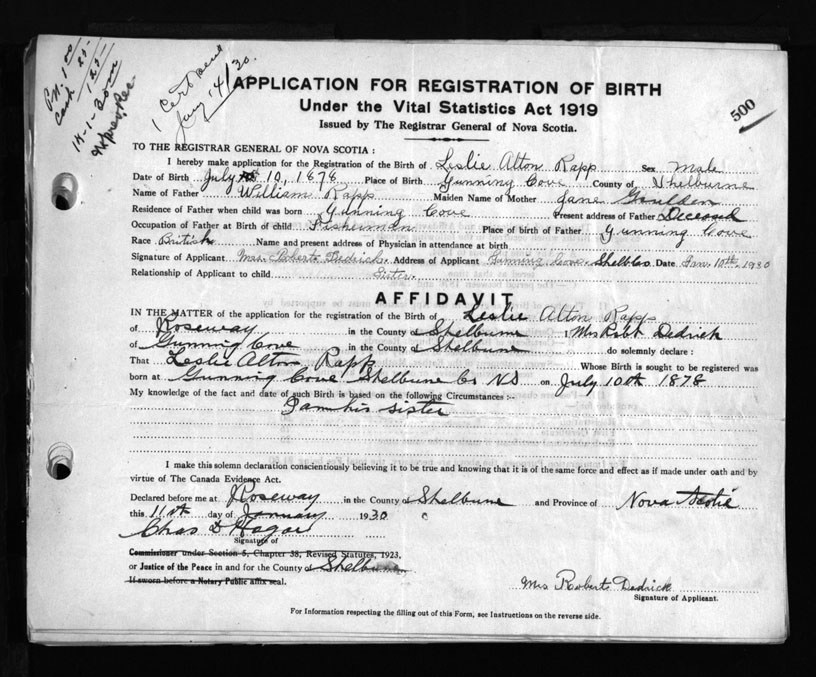 Pd. 1.00
Cash 25-
1.25-
14-1-30
1 Cert
Jany 14/30.
500
APPLICATION FOR REGISTRATION OF BIRTH
Under the Vital Statistics Act 1919
Issued by The Registrar General of Nova Scotia.
TO THE REGISTRAR GENERAL OF NOVA SCOTIA :
I hereby make application for the Registration of the Birth of Leslie Alton Rapp Sex Male
Date of Birth July 10, 1878 Place of Birth Gunning Cove County of Shelburne
Name of Father William Rapp Maiden Name of Mother Jane Goulden
Residence of Father when child was born Gunning Cove Present address of Father Deceased
Occupation of Father at Birth of child Fisherman Place of birth of Father Gunning Cove
Race British Name and present address of Physician in attendance at birth
Signature of Applicant Mrs. Roberts Dedrick Address of Applicant Gunning Cove Shelb Co Date Jan. 10th, 1930
Relationship of Applicant to child Sister.
AFFIDAVIT
IN THE MATTER of the application for the registration of the Birth of Leslie Alton Rapp
of Roseway in the County of Shelburne I, Mrs Robt Dedrick
of Gunning Cove in the County of Shelburne do solemnly declare :
That Leslie Alton Rapp Whose Birth is sought to be registered was
born at Gunning Cove Shelburne Co NS on July 10th 1878
My knowledge of the fact and date of such Birth is based on the following Circumstances :-
I am his sister
I make this solemn declaration conscientiously believing it to be true and knowing that it is of the same force and effect as if made under oath and by
virtue of The Canada Evidence Act.
Declared before me at Roseway in the County of Shelburne and Province of Nova Scotia
this 11th day of January 1930
Chas D Hagar
Signature of
Commissioner under Section 5, Chapter 38, Revised Statutes, 1923,
or Justice of the Peace in and for the County of Shelburne
If sworn before a Notary Public affix seal.
Mrs Roberts Dedrick
Signature of Applicant.
For Information respecting the filling out of this Form, see Instructions on the reverse side.